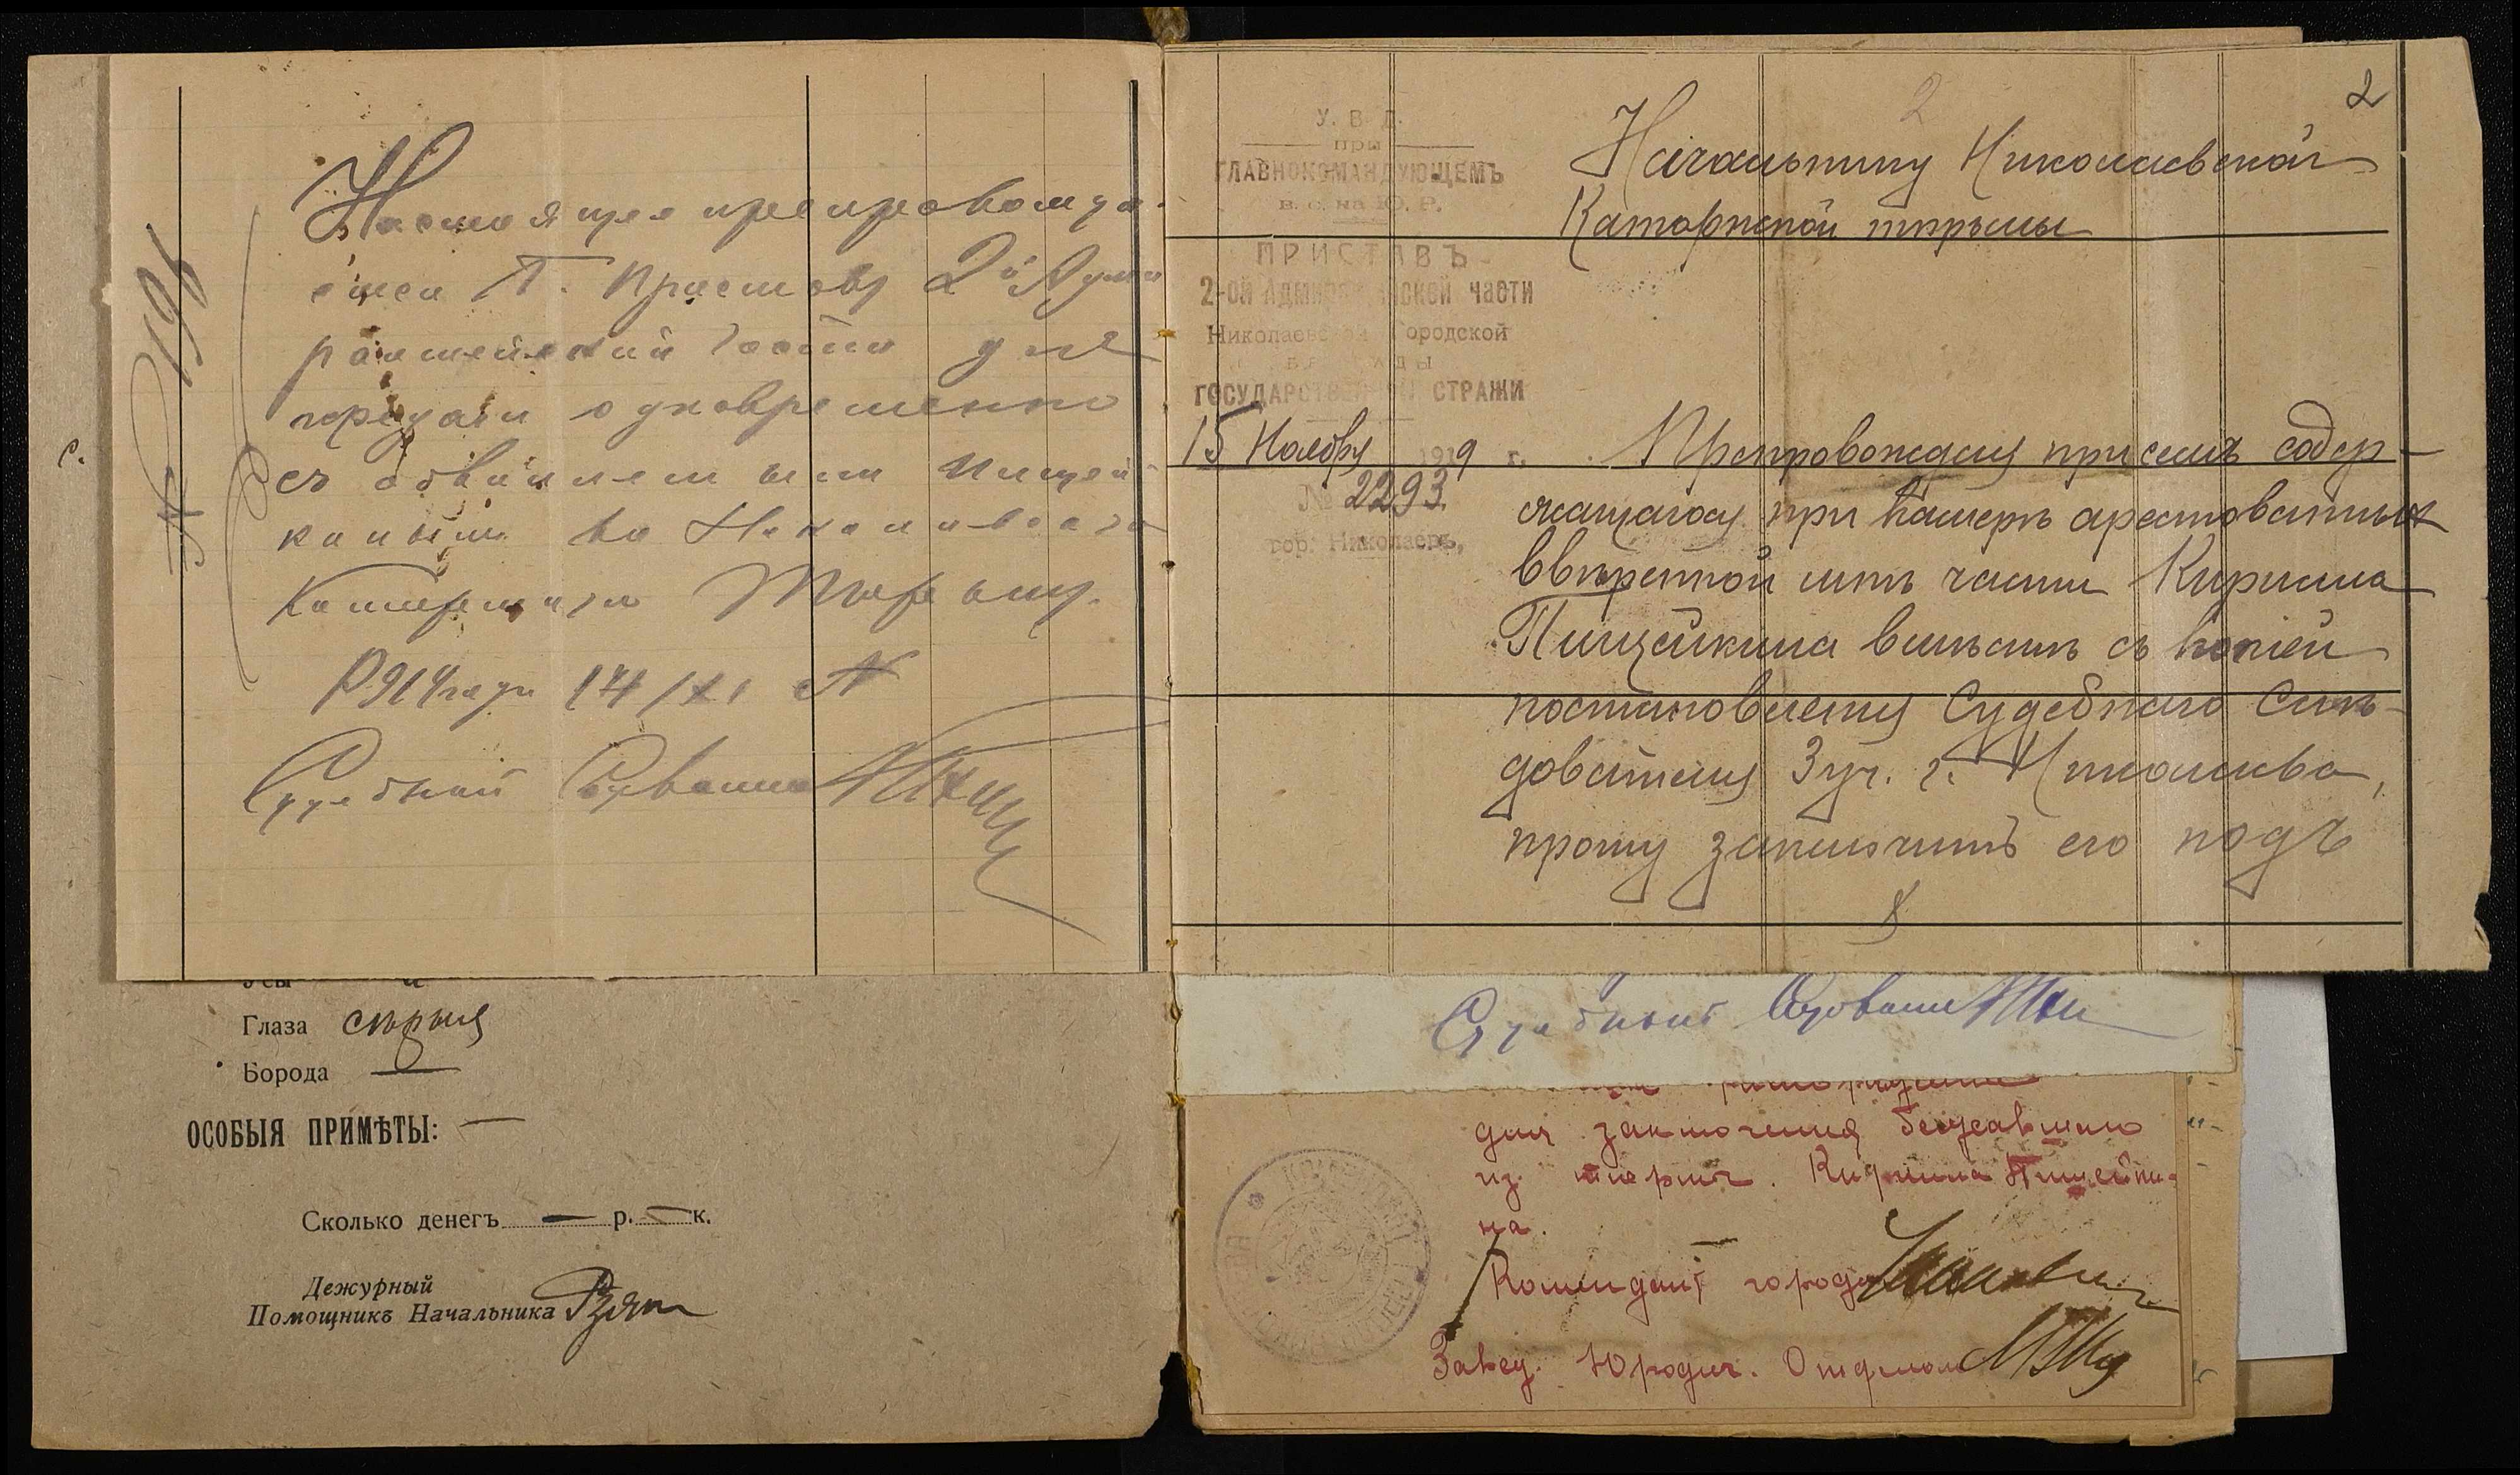 № 196
Настоящее препровожда-
ется Г. Приставу 2й Адми
ралтейской части для
передачи одновременно
съ обвиняемымъ Пищей-
кинымъ въ Николаевскую
Каторжную Тюрьму.
1919 года 14/XI
Судебный Следователь
с.
Усы
Глаза сѣрые
Борода —
ОСОБЫЯ ПРИМѢТЫ: —
Сколько денегъ — р. — к.
Дежурный
Помощникъ Начальника
2
2
У. В. Д.
при
ГЛАВНОКОМАНДУЮЩЕМЪ
в. с. на Ю. Р.
ПРИСТАВЪ
2-ой Адмиралтейской части
Николаевской Городской
БРИГАДЫ
ГОСУДАРСТВЕННОЙ СТРАЖИ
15 Ноября 1919 г.
№ 2293.
гор. Николаевъ,
Начальнику Николаевской
Каторжной тюрьмы
Препровождая при семъ содер-
жащагося при камерѣ арестованных
ввѣренной мнѣ части Кирилла
Пищейкина вмѣстѣ съ копіей
постановленія Судебнаго Слѣ-
дователя 3 уч. г. Николаева,
прошу заключить его подъ
Судебный Следователь
для заключения бежавшего
из тюрьм. Кирилла Пищейки-
на.
Комендант города
Завед. Юридич. Отделом